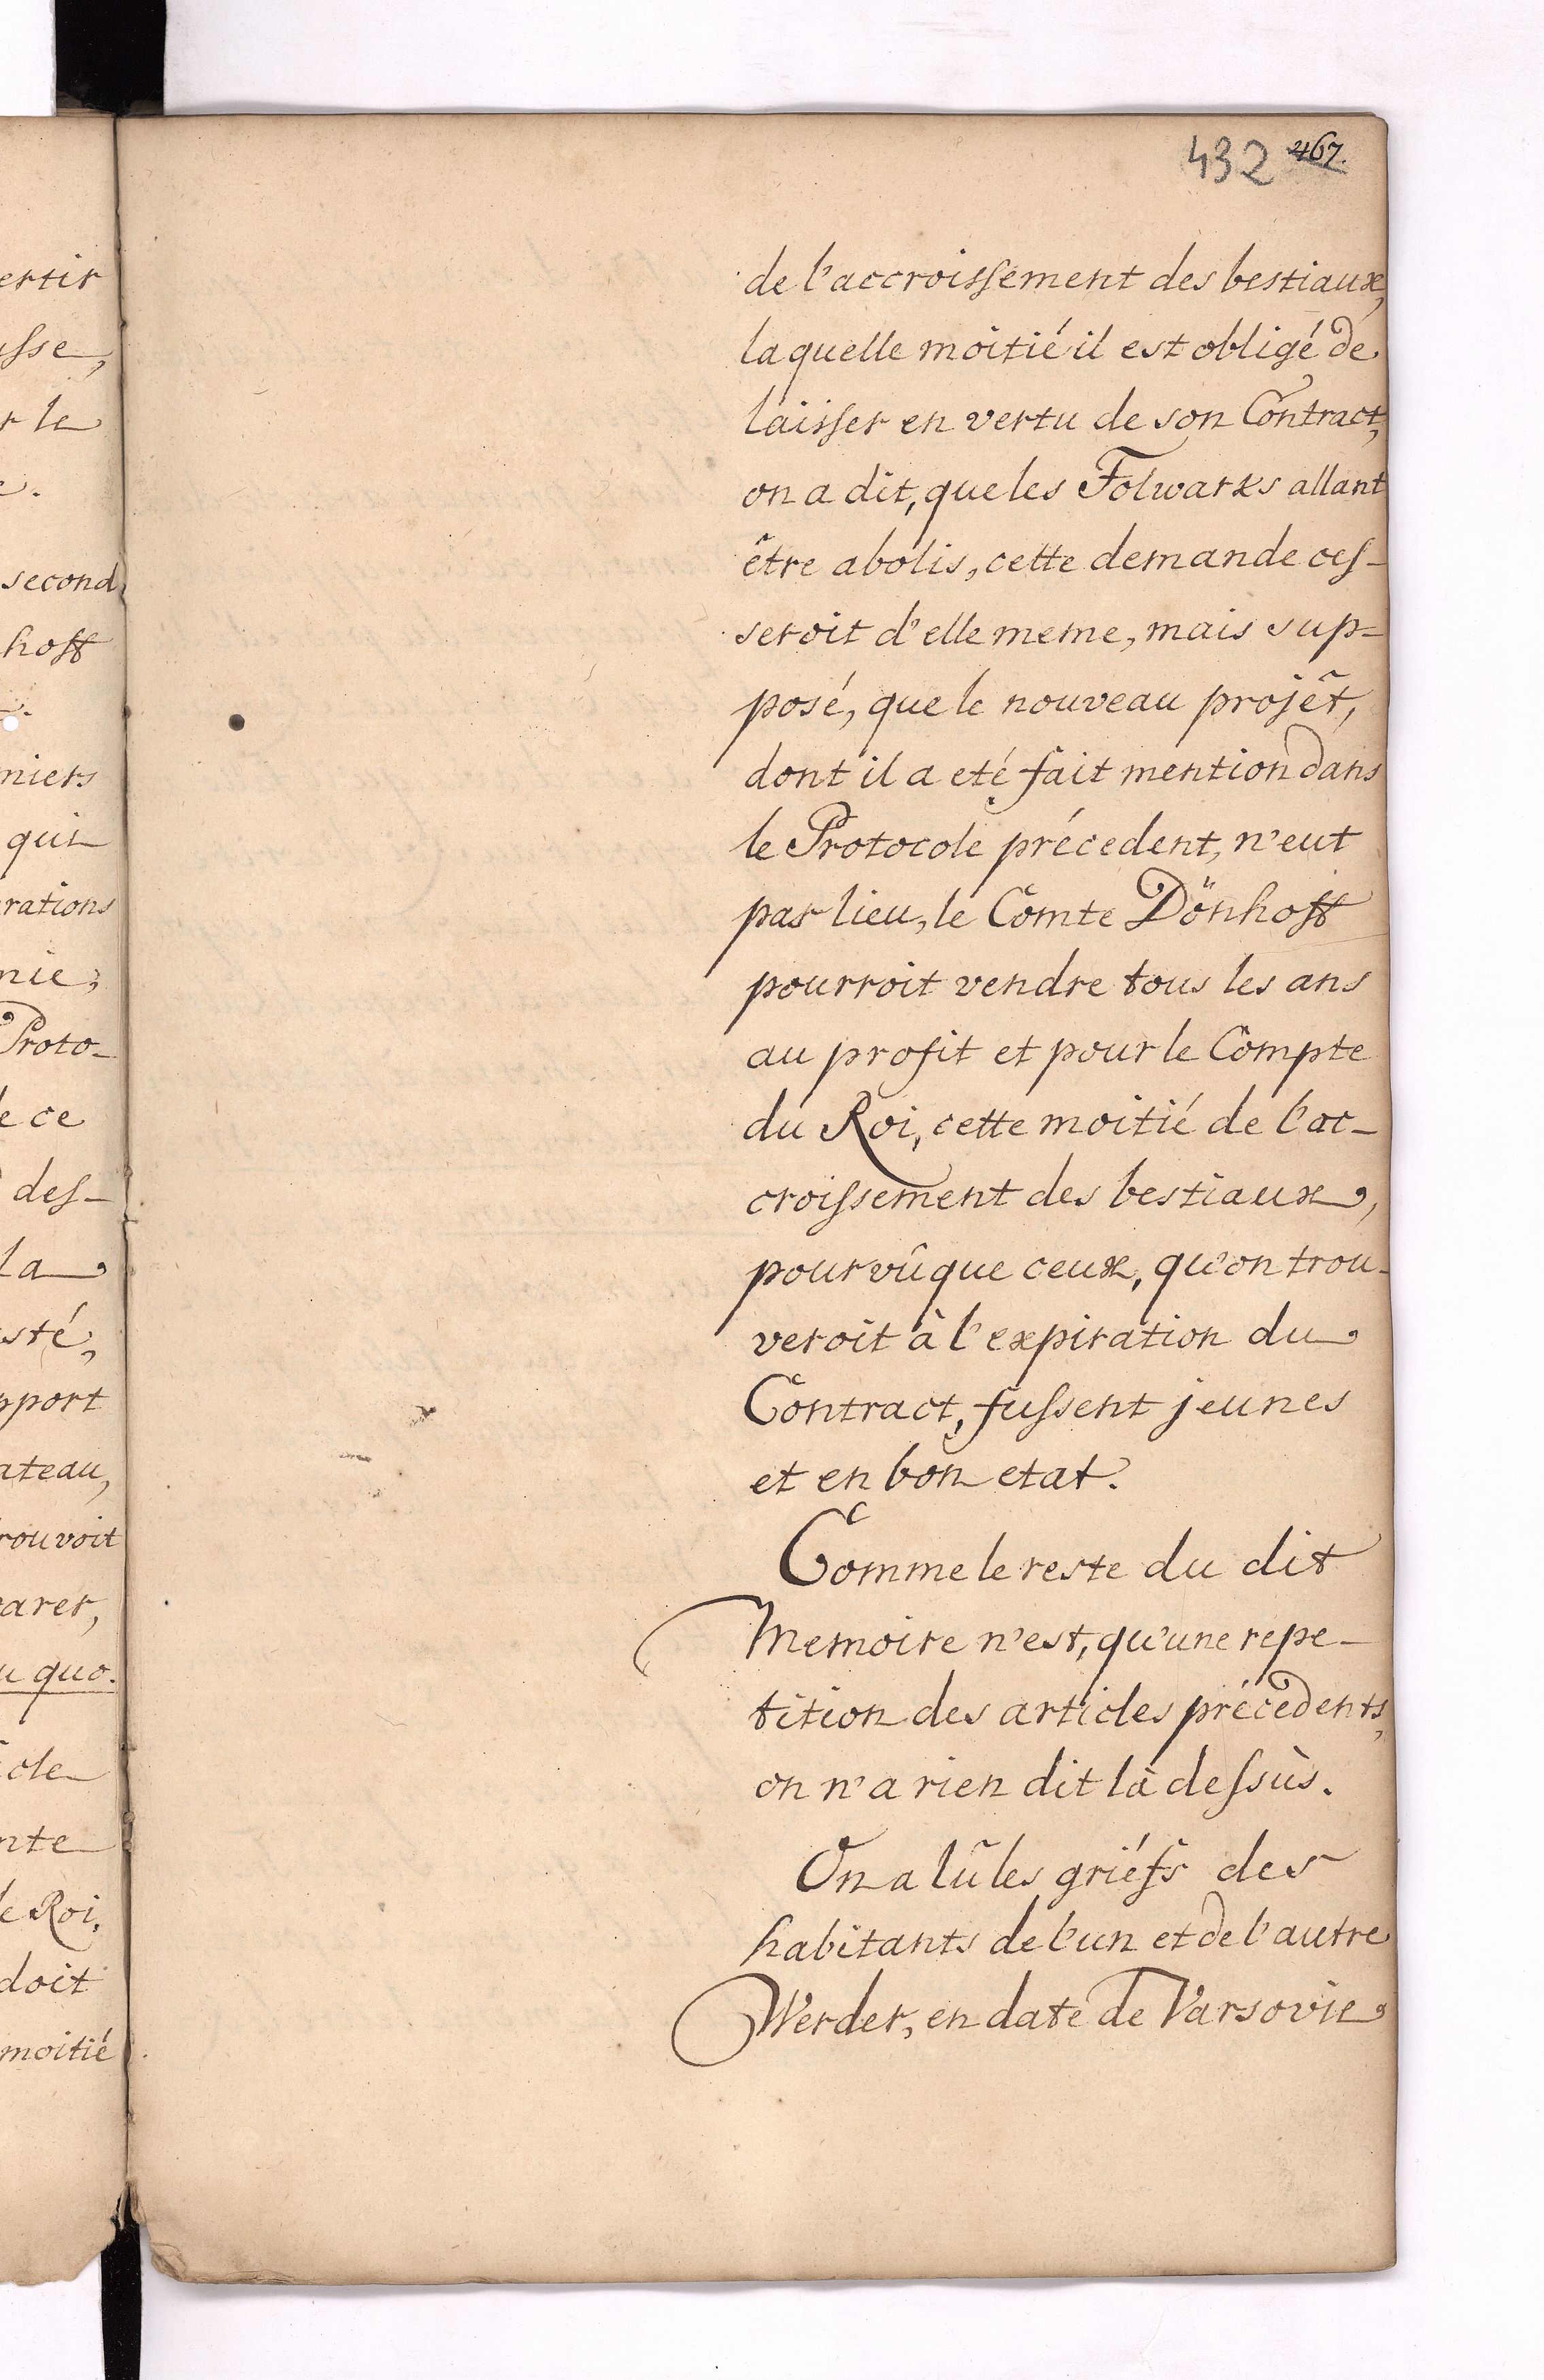 432 467.
de l'accroissement des bestiaux,
laquelle moitié il est obligé de
laisser en vertu de son Contract,
on a dit, que les Folwarks allant
être abolis, cette demande ces-
seroit d'elle meme, mais sup=
posé, que le nouveau projêt,
dont il a eté fait mention dans
le Protocole précedent, n'eut
pas lieu, le Comte Dönhoff
pourroit vendre tous les ans
au profit et pour le Compte
du Roi, cette moitié de l'ac-
croissement des bestiaux,
pourvûque ceux, qu'on trou-
veroit à l'expiration du
Contract, fussent jeunes
et en bon etat.
Comme le reste du dit
Memoire n'est, qu'une repe-
tition des articles précedents,
on n'a rien dit là dessùs.
On a lû les griéfs des
habitants de l'un et de l'autre
Werder, en date de Varsovie
ertir
sse,
r le
second
hoff
niers
qui
rations
nie,
Proto-
e ce
des-
la
sté,
pport
ateau,
rouvoit
arer,
u quo.
cle
nte
le Roi,
doit
moitié